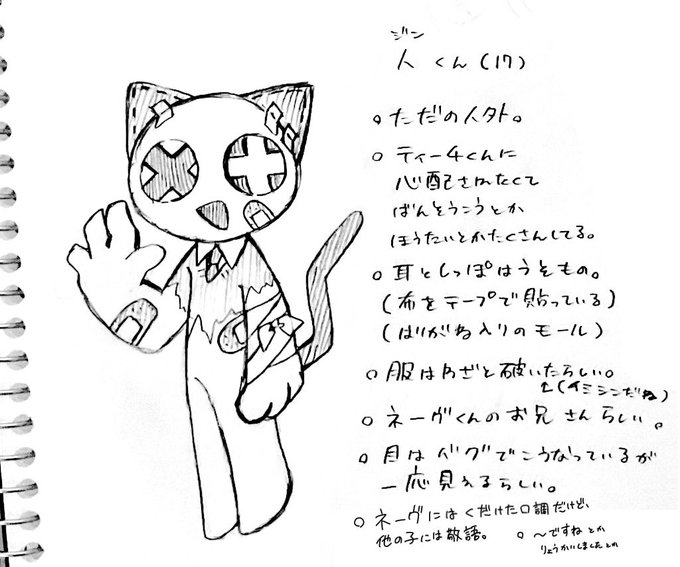 ジン
人くん(17)
○ただの人外。
○ティー4くんに
心配されたくて
ばんそうこうとか
ほうたいとかたくさんしてる。
○耳としっぽはうそもの。
(布をテープで貼っている)
(はりがね入りのモール)
○服はわざと破いたらしい。
↑(イミシンだね)
○ネーヴくんのお兄さんらしい。
○目はバグでこうなっているが
一応見えるらしい。
○ネーヴにはくだけた口調だけど、
他の子には敬語。
○〜ですねとか
りょうかいしましたとか